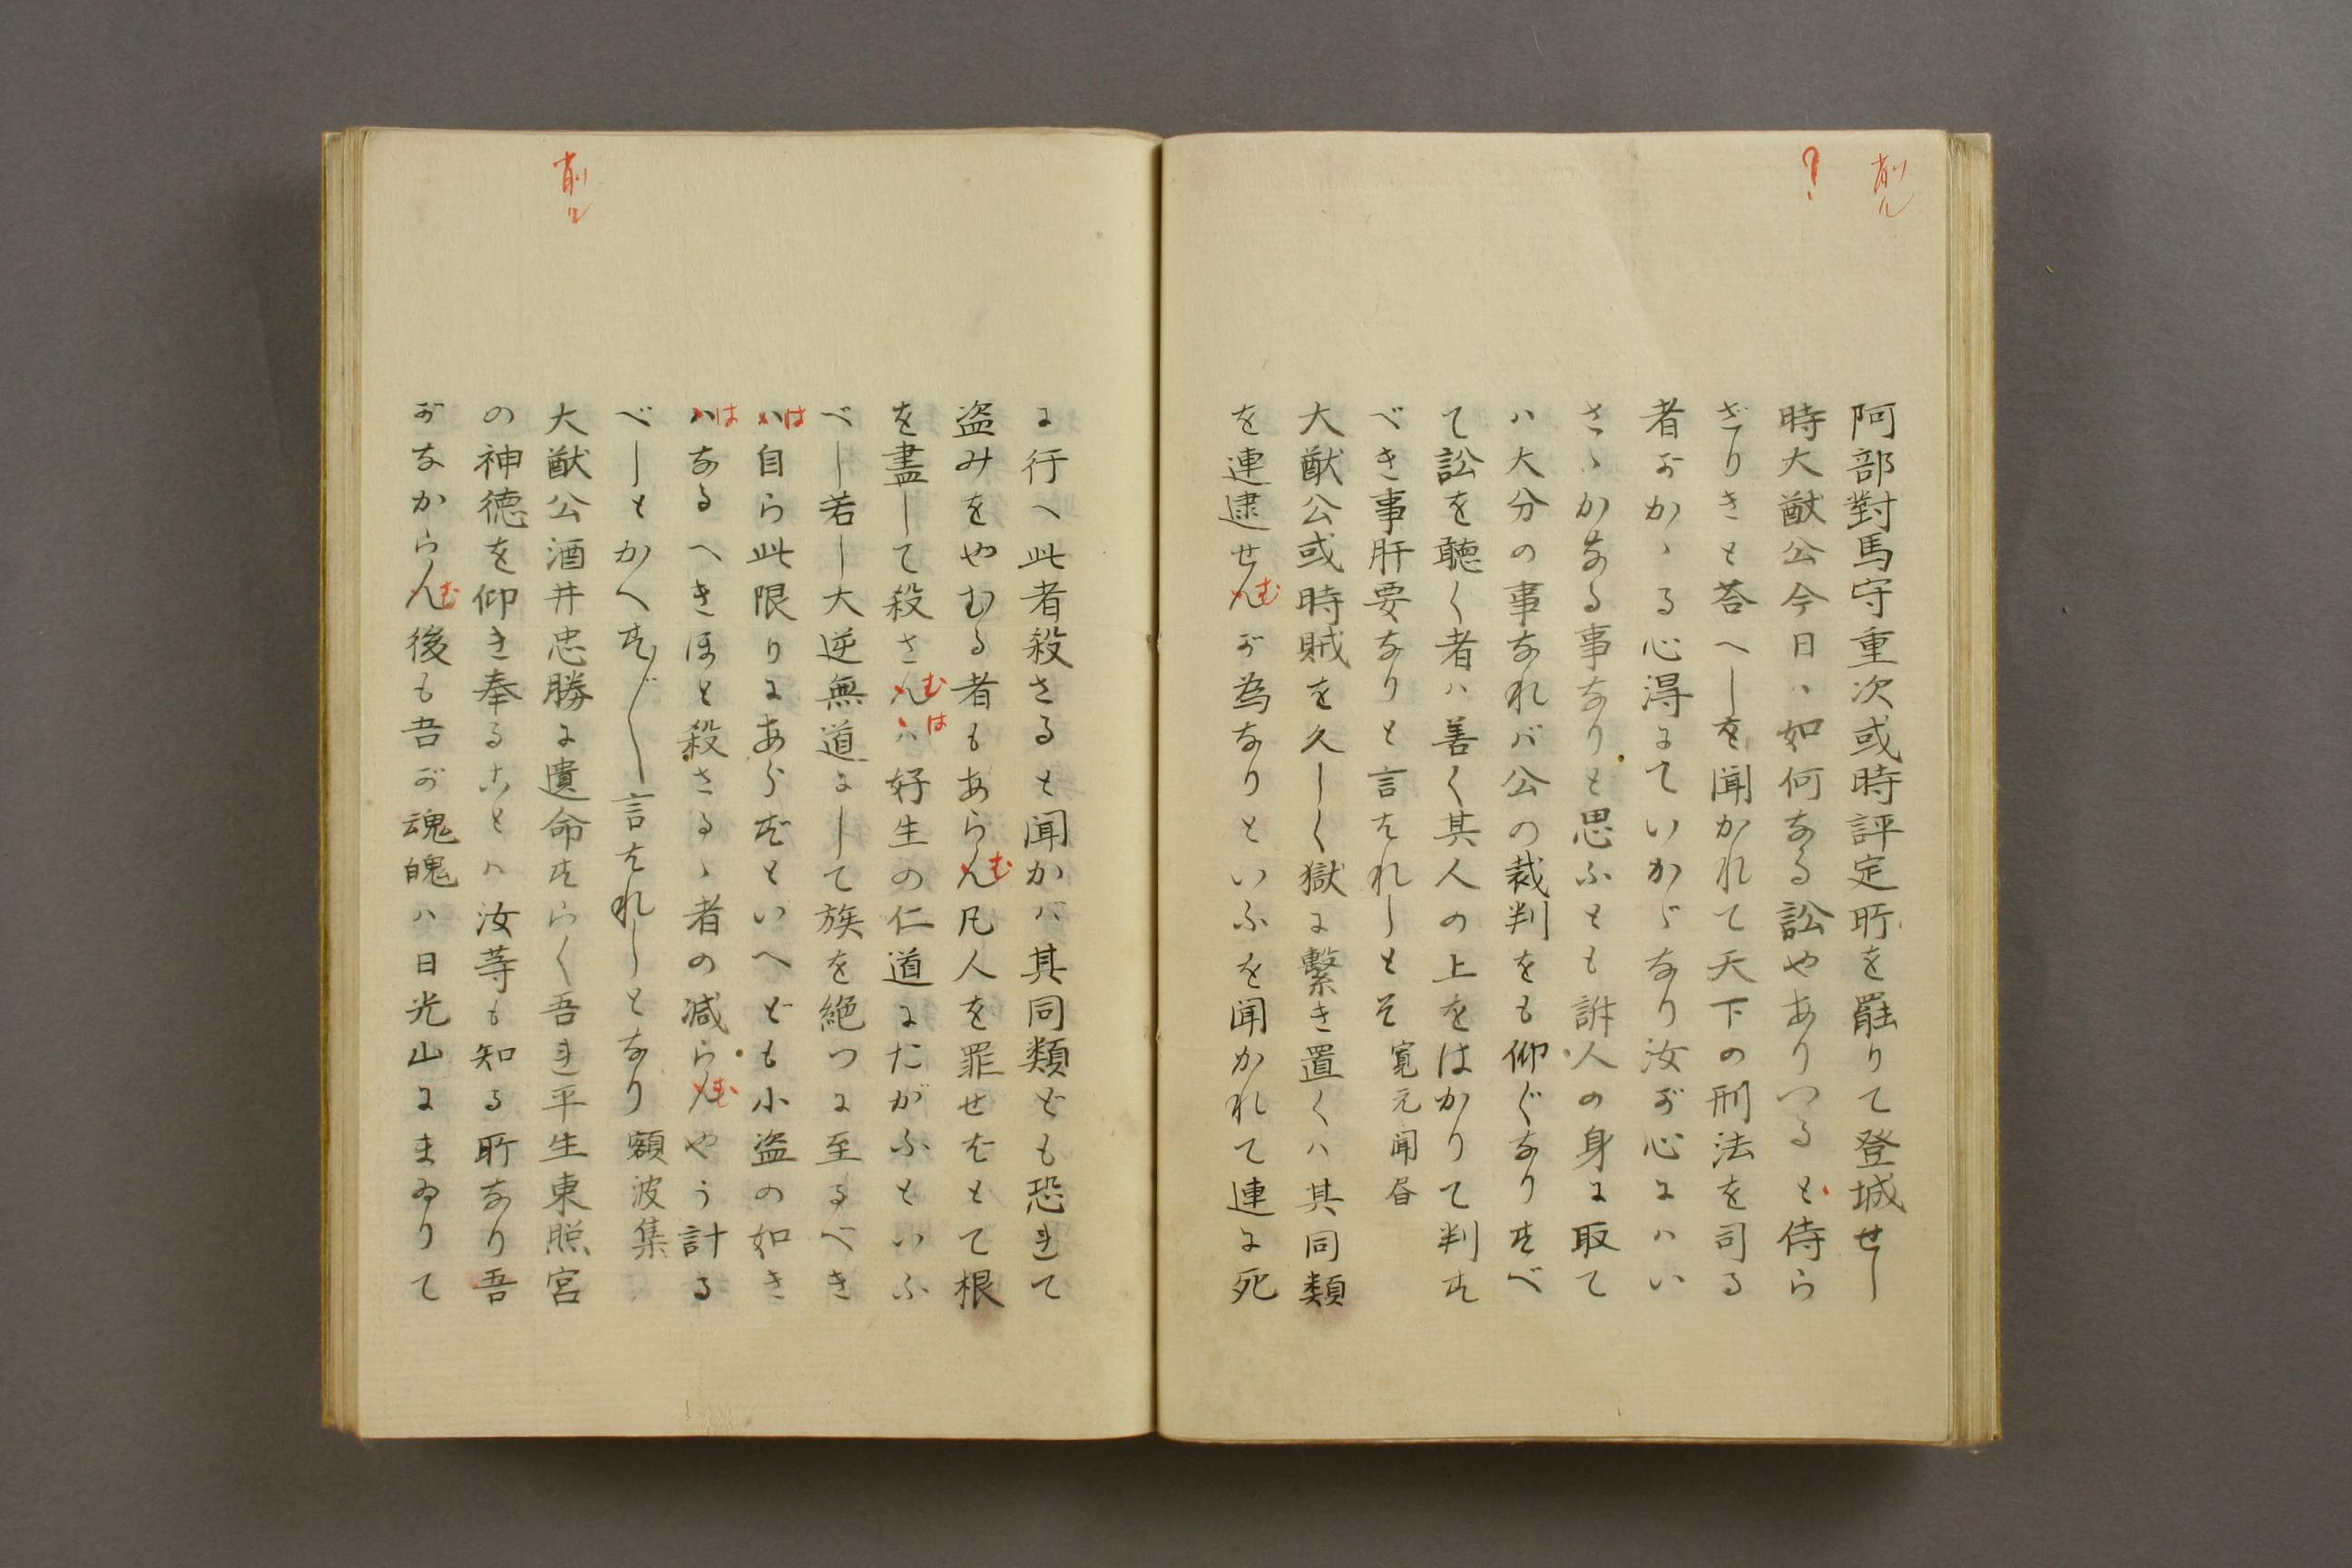 削ル
?
阿部對馬守重次或時評定所を罷りて登城せし
時大猷公今日ハ如何なる訟やありつると侍ら
ざりきと荅へしを聞かれて天下の刑法を司る
者がかゝる心得にていかゞなり汝が心にハい
さゝかなる事なりと思ふとも訴人の身に取て
ハ大分の事なれバ公の裁判をも仰ぐなりすべ
て訟を聴く者ハ善く其人の上をはかりて判す
べき事肝要なりと言はれしとぞ 寛元聞昏
大猷公或時賊を久しく獄に繫き置くハ其同類
を連逮せんむが為なりといふを聞かれて連に死
削ル
に行へ此者殺さると聞かバ其同類ども恐れて
盗みをやむる者もあらんむ凡人を罪せむとて根
を盡して殺さんむハは好生の仁道にたがふといふ
べし若し大逆無道にして族を絶つに至るべき
ハは自ら此限りにあらずといへども小盗の如き
ハはなるへきほと殺さるゝ者の減らんむやう計る
べしとかへす〲言はれしとなり 額波集
大猷公酒井忠勝に遺命すらく吾れ平生東照宮
の神徳を仰き奉ることハ汝等も知る所なり吾
がなからんむ後も吾が魂魄ハ日光山にまゐりて